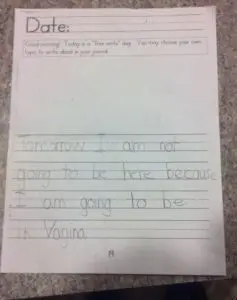 Date:
Good morning! Today is a "free write" day. You may choose your own
topic to write about in your journal.
Tomorrow I am not
going to be here because
I am going to be
in Vagina